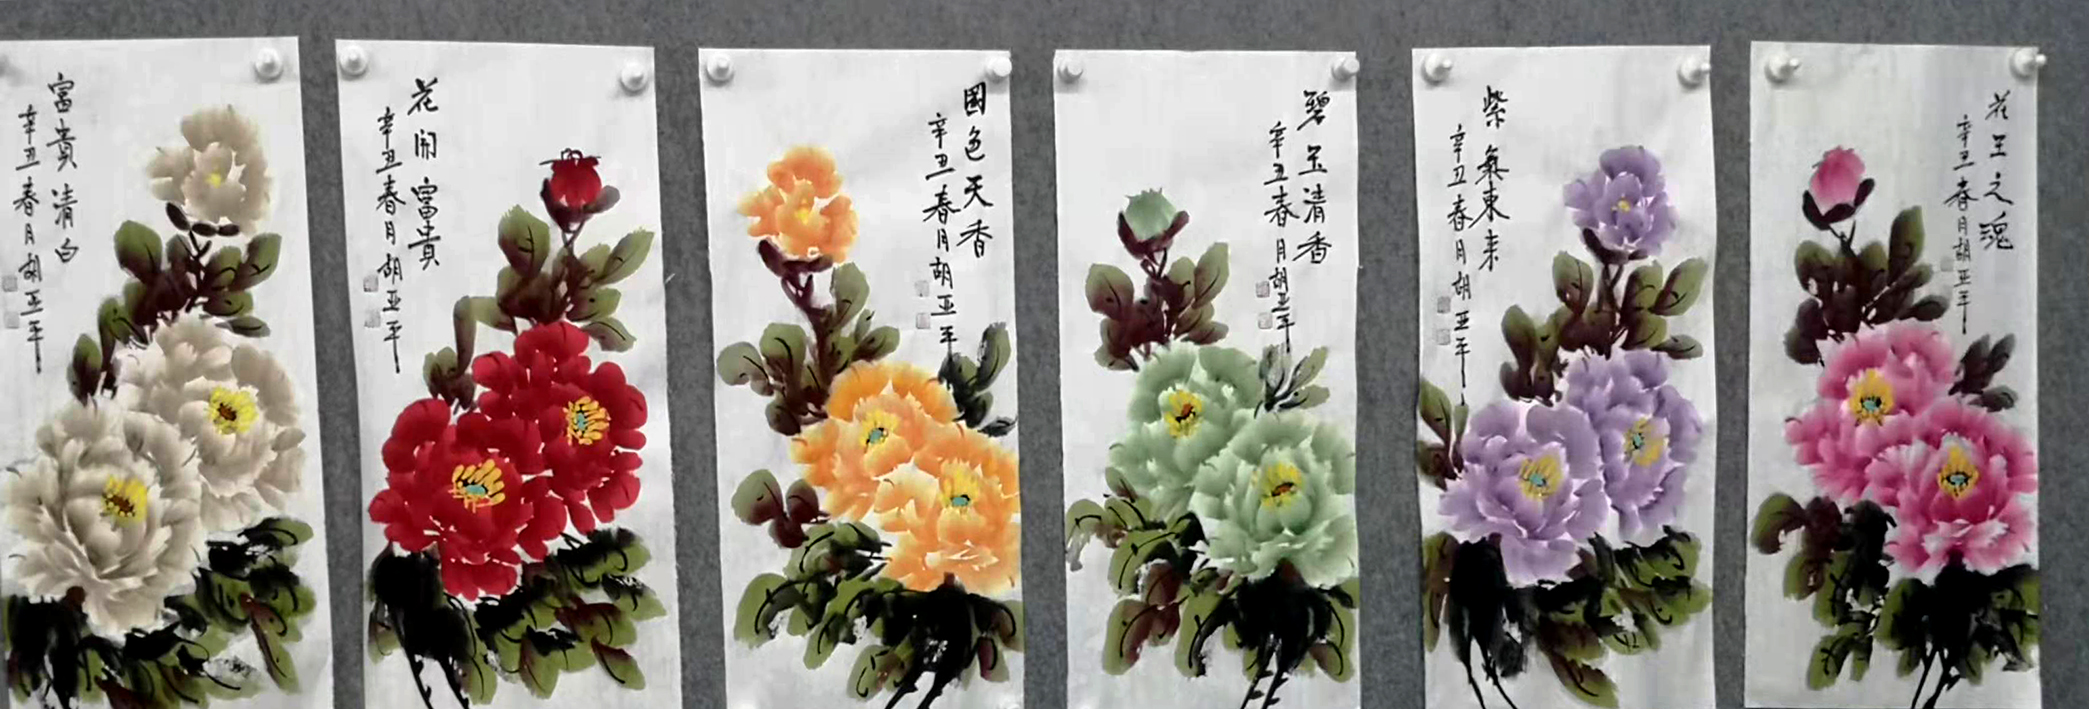 富貴清白
辛丑春月胡亚平
花開富貴
辛丑春月胡亚平
國色天香
辛丑春月胡亚平
碧玉清香
辛丑春月胡亚平
紫氣東来
辛丑春月胡亚平
花王之魂
辛丑春月胡亚平